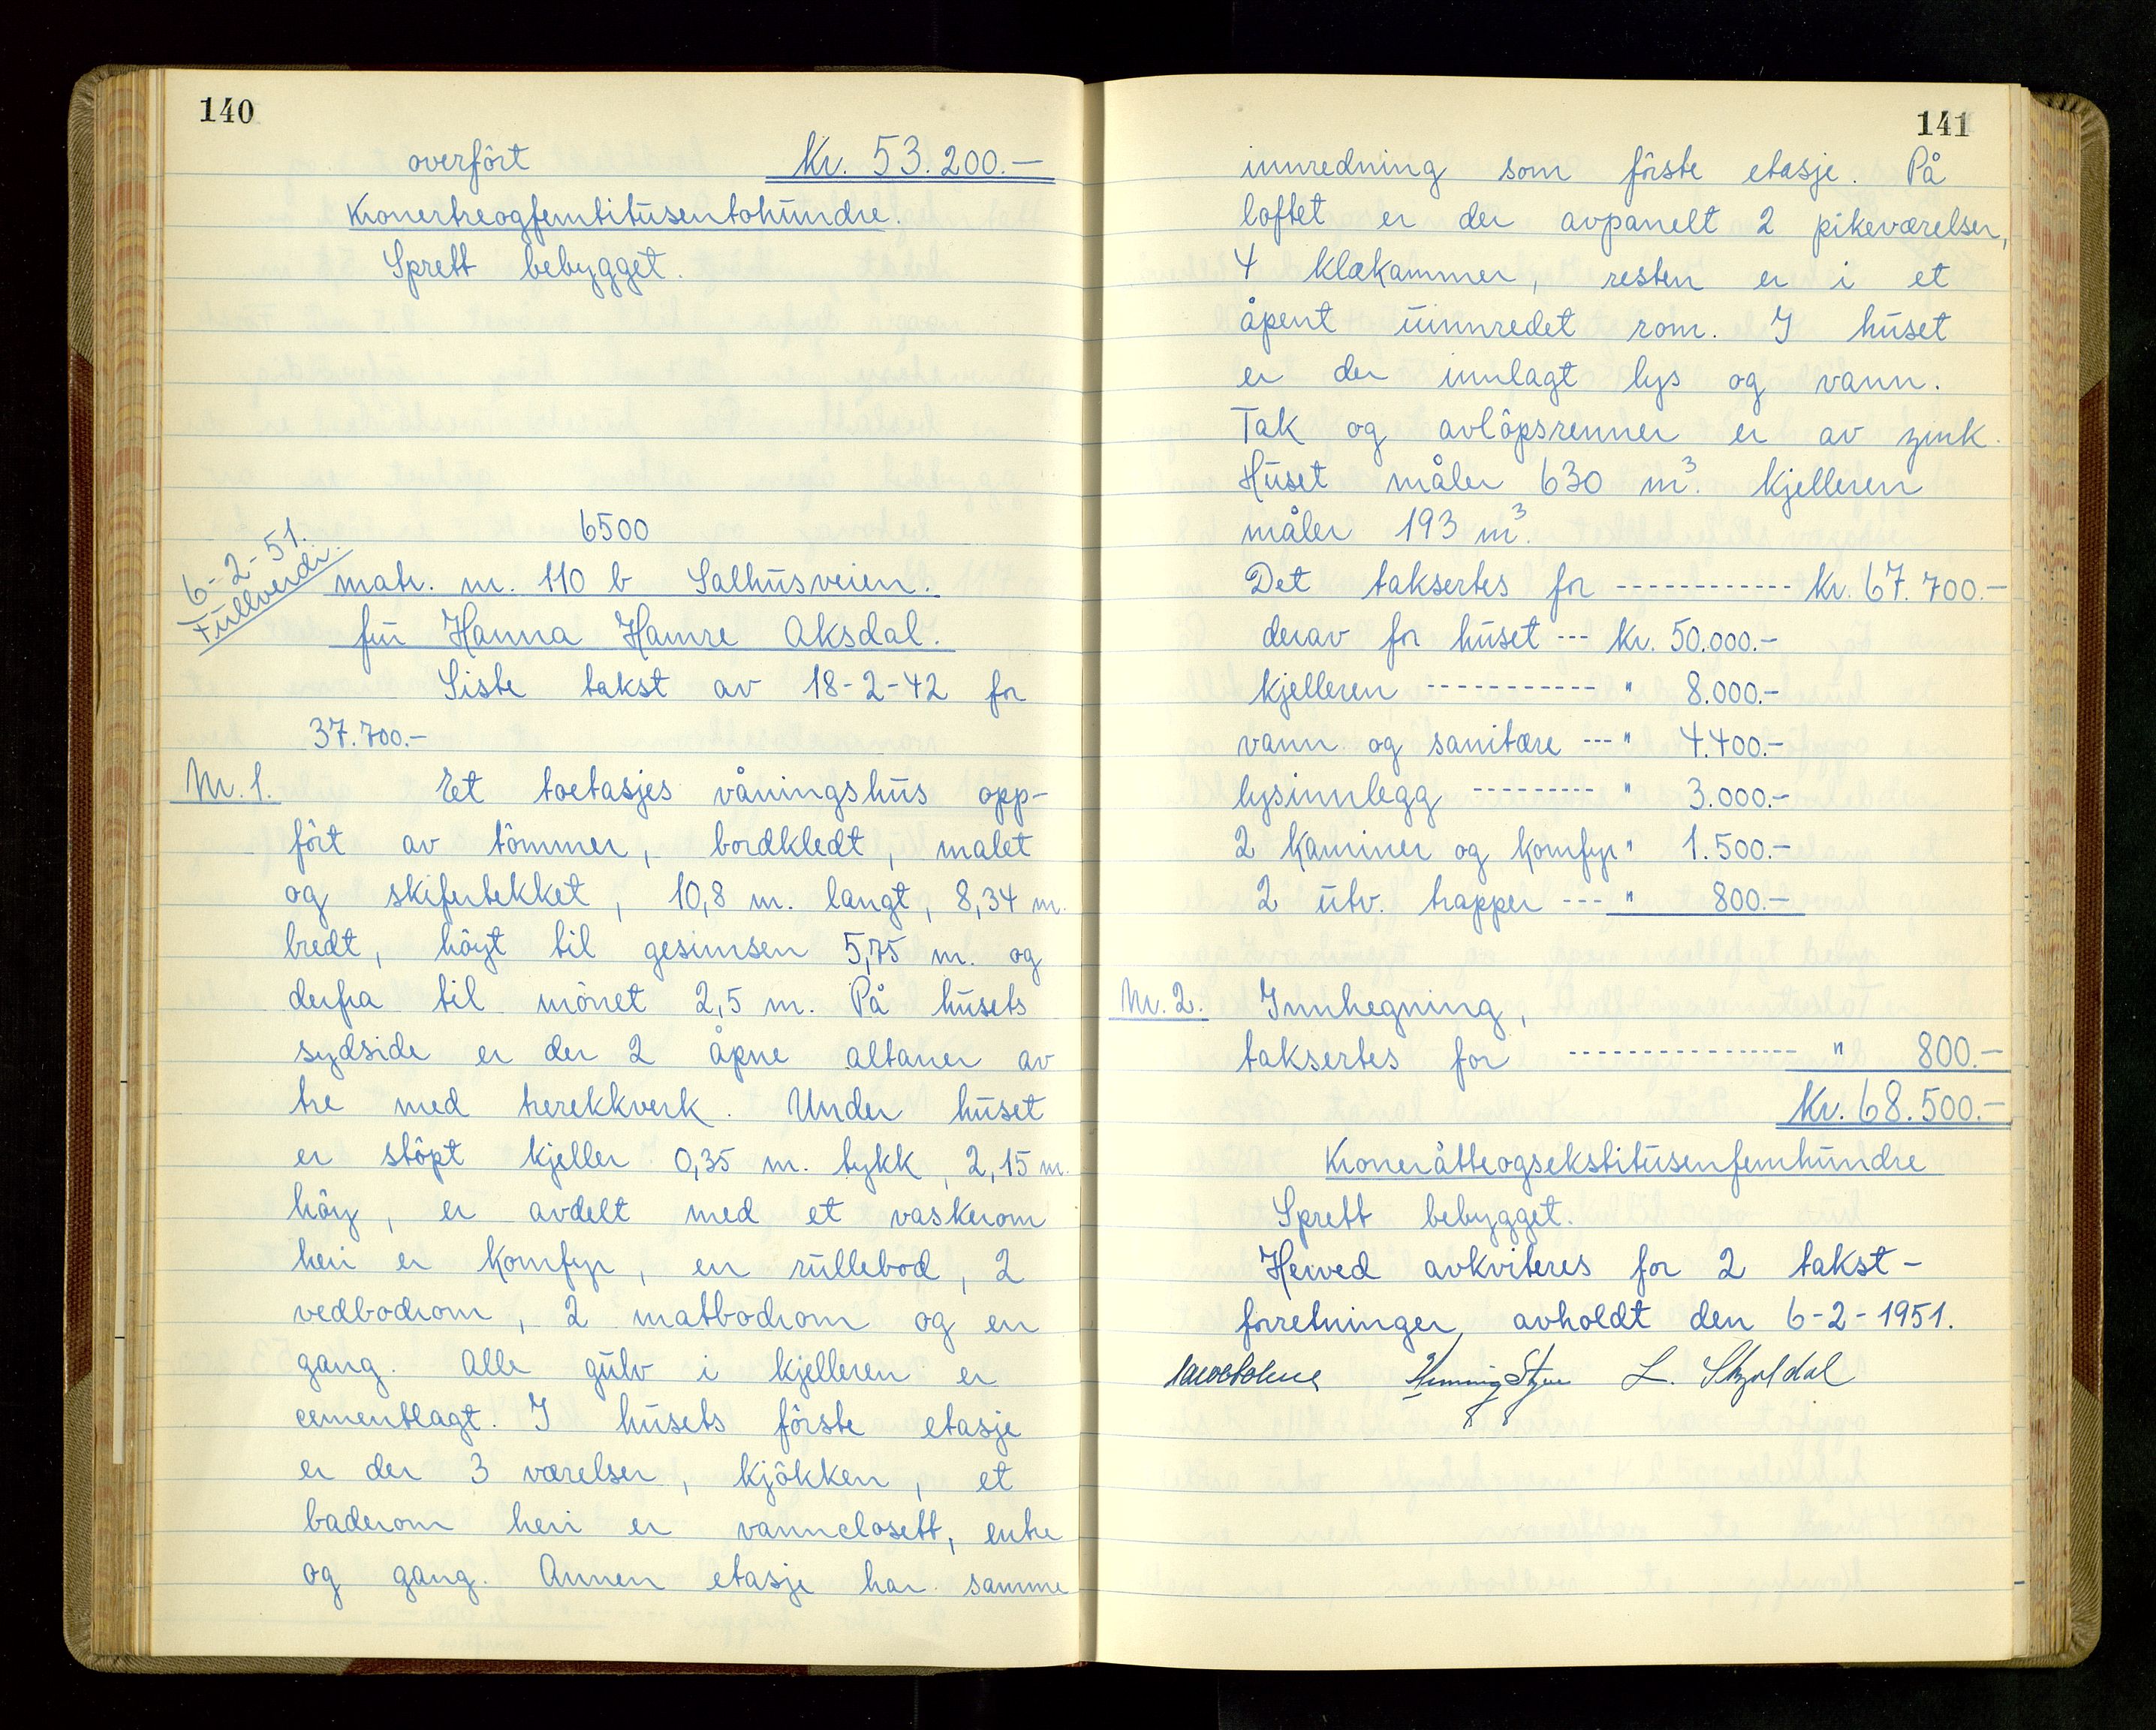 140
overført Kr. 53.200.-
Kronertreogfemtitusentohundre.
Sprett bebygget.
6500
6-2-51.
Fullverdi.
matr. nr. 110 b Salhusveien.
fru Hanna Hamre Aksdal.
Siste takst av 18-2-42 for
37.700.-
Nr. 1. Et toetasjes våningshus opp-
ført av tømmer, bordkledt, malet
og skifertekket, 10,8 m. langt, 8,34 m.
bredt, høyt til gesimsen 5,75 m. og
derfra til mønet 2,5 m. På husets
sydside er der 2 åpne altaner av
tre med trerekkverk. Under huset
er støpt kjeller 0,35 m. tykk, 2,15 m.
høy, er avdelt med et vaskerom
heri er komfyr, en rullebod, 2
vedbodrom, 2 matbodrom og en
gang. Alle gulv i kjelleren er
cementlagt. I husets første etasje
er der 3 værelser, kjøkken, et
baderom heri er vannclosett, entre
og gang. Annen etasje har samme
141
innredning som første etasje. På
loftet er der avpanelt 2 pikeværelser,
4 klækammer, resten er i et
åpent uinnredet rom. I huset
er der innlagt lys og vann.
Tak og avløpsrenner er av zink.
Huset måler 630 m³. Kjelleren
måler 193 m³.
Det taksertes for ------------ Kr. 67.700.-
derav for huset --- Kr. 50.000.-
kjelleren ------------ " 8.000.-
vann og sanitære --- " 4.400.-
lysinnlegg --------- " 3.000.-
2 kaminer og komfyr " 1.500.-
2 utv. trapper --- " 800.-
Nr. 2. Innhegning,
taksertes for ----------------- " 800.-
Kr. 68.500.-
Kroneråtteogsekstitusenfemhundre
Sprett bebygget.
Herved avkviteres for 2 takst-
forretninger, avholdt den 6-2-1951.
Henning Styve L. Skjoldal